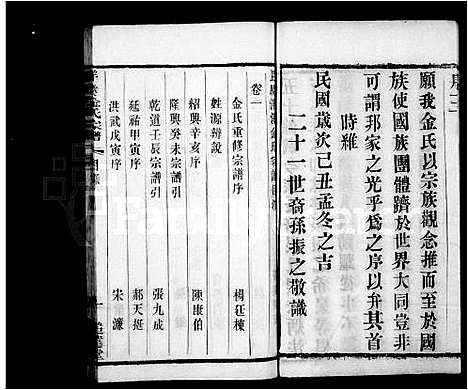 序二
願我金氏以宗族觀念推而至於國
族使國族團體躋於世界大同豈非
可謂邦家之光乎為之序以弁其首
時維
民國歲次己丑孟冬之吉
二十一世裔孫振之敬識
卷一
金氏重修宗譜序 楊廷棟
姓源辯說
紹興辛亥序
隆興癸未宗譜引 陳康伯
乾道壬辰宗譜引 張九成
延祐甲寅序 郝天挺
洪武戊寅序 宋濂